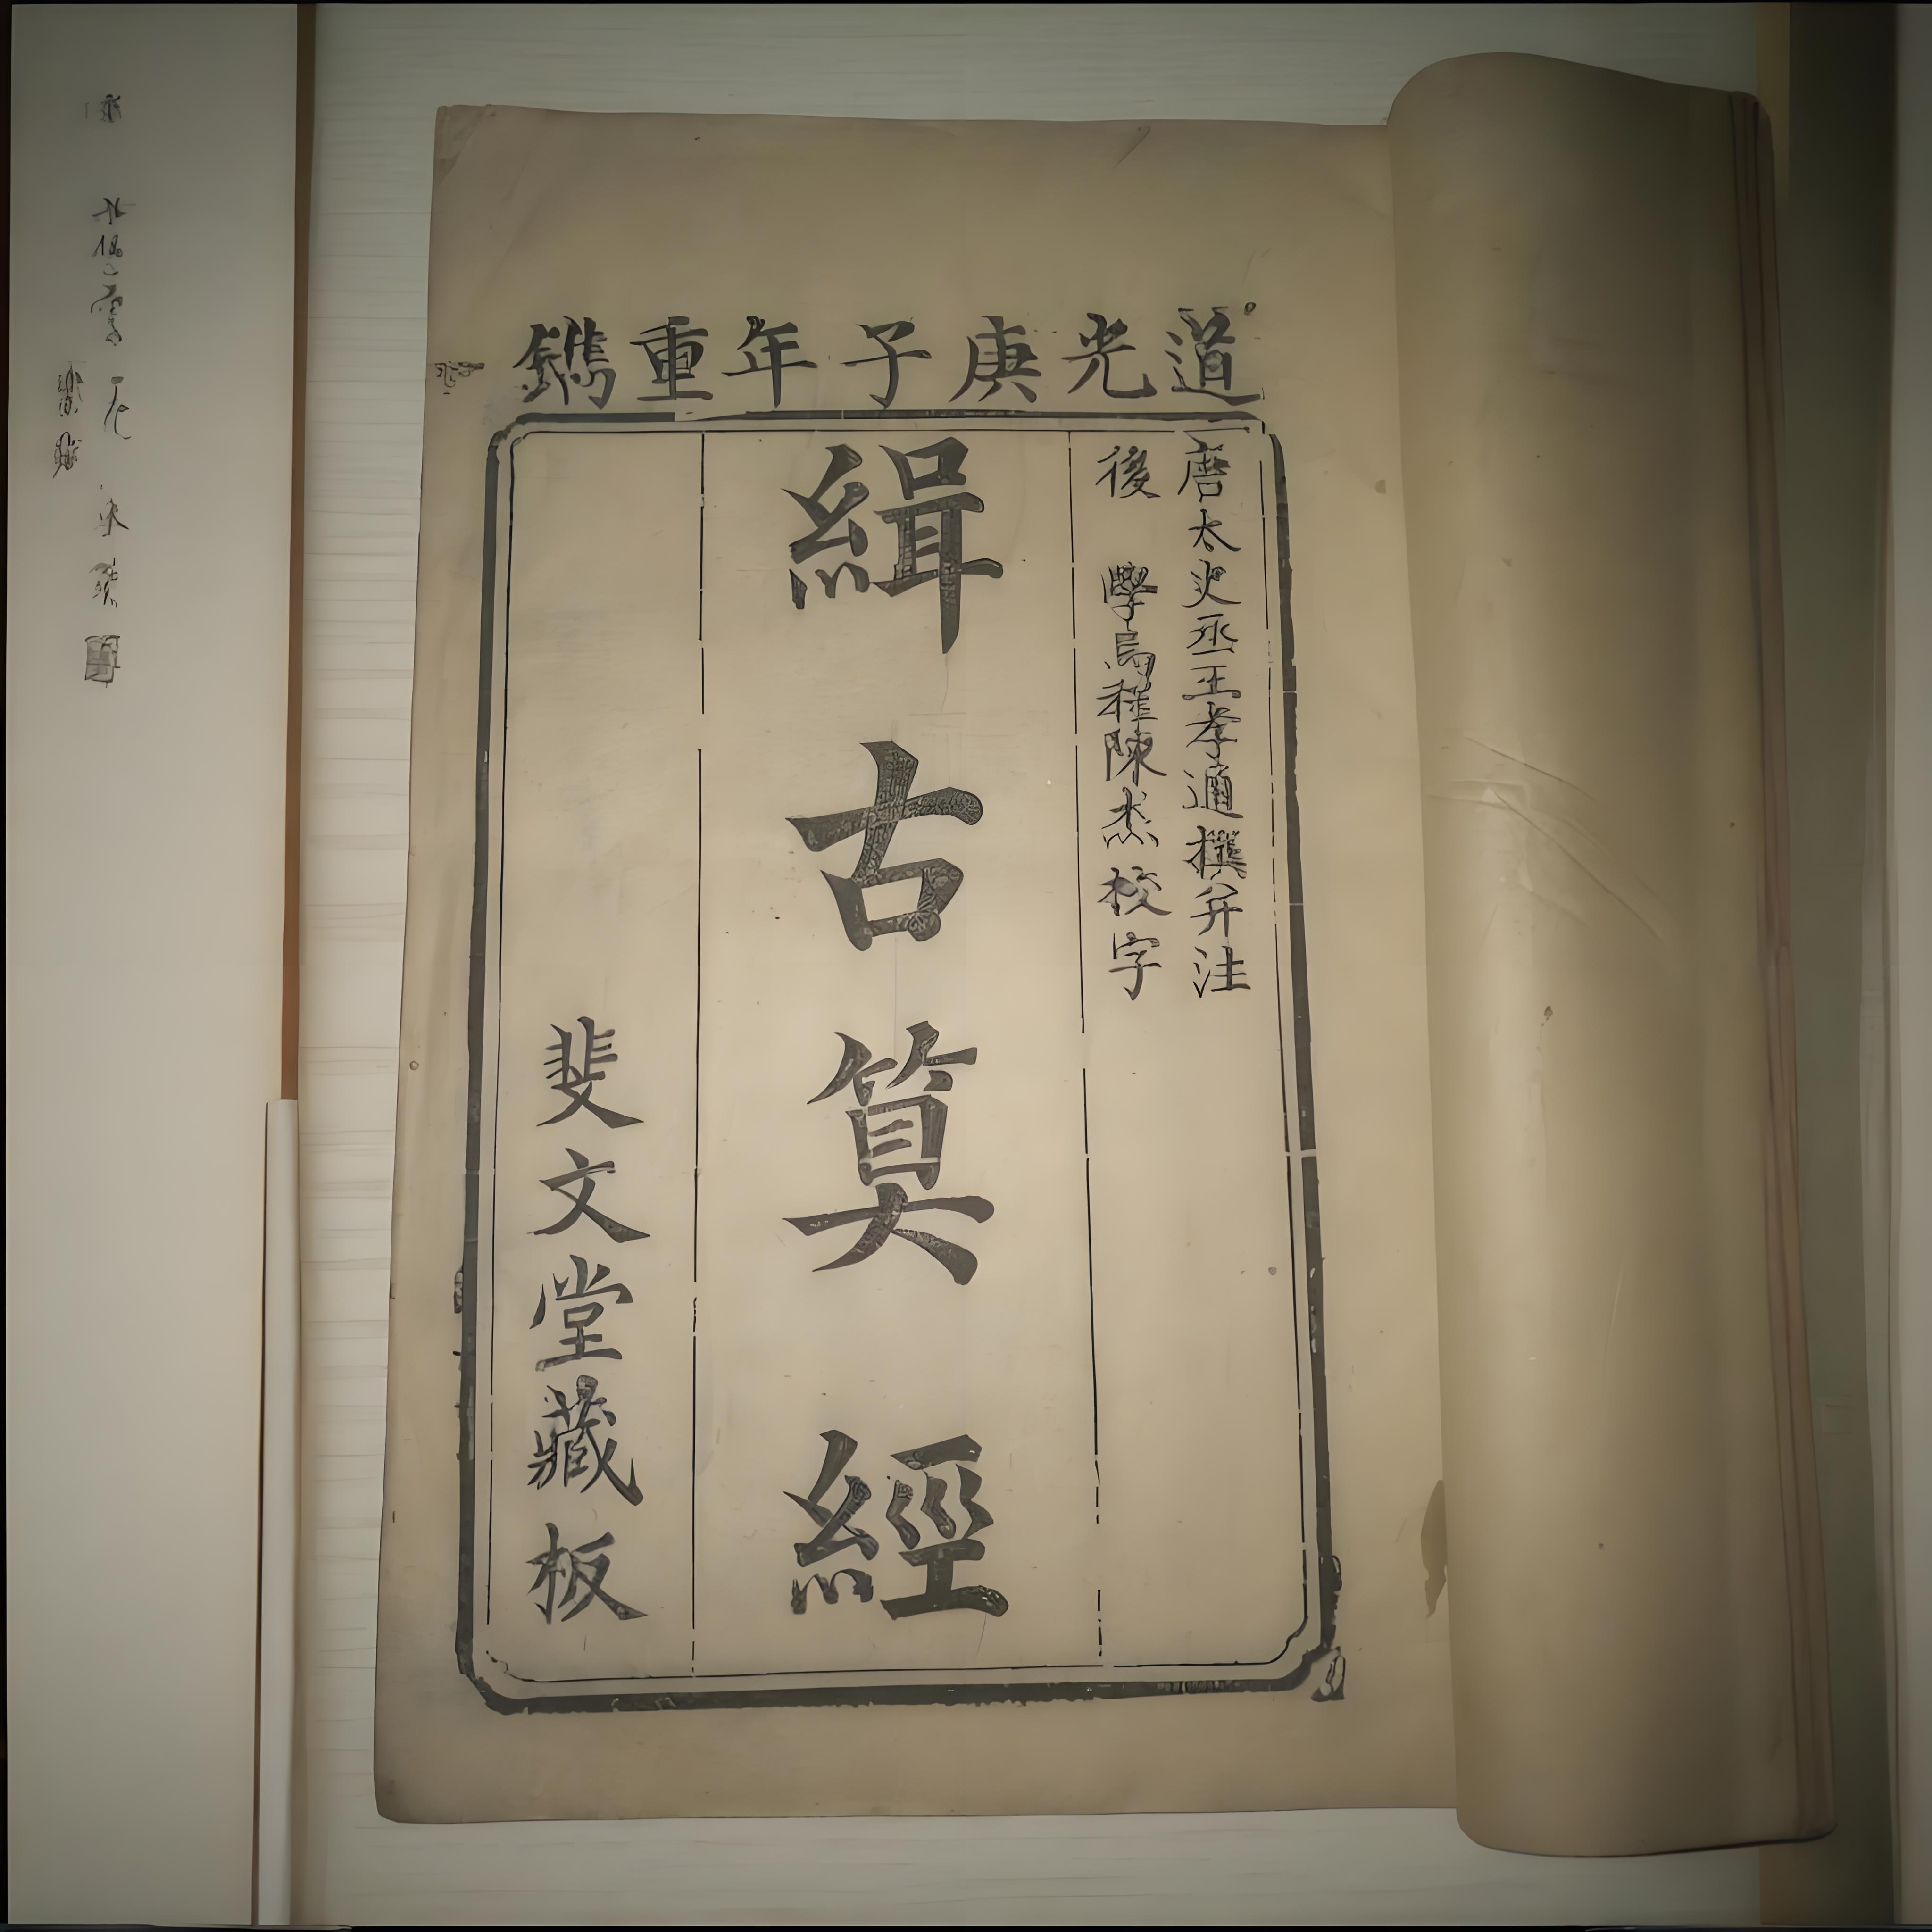 道光庚子年重鐫
唐太史丞王孝通撰并注
後學烏程陳杰校字
緝古算經
斐文堂藏板